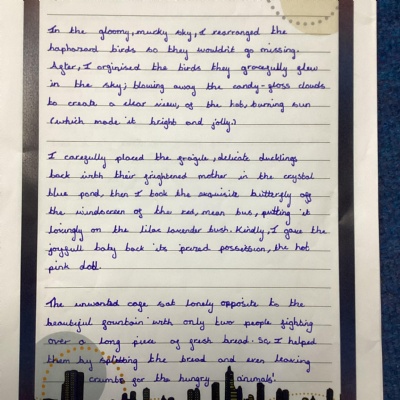 In the gloomy, mucky sky, I rearranged the
haphazard birds so they wouldn't go missing.
After, I orginised the birds they gracefully flew
in the sky; blowing away the candy-floss clouds
to create a clear view, of the hot, burning sun
(which made it bright and jolly.)
I carefully placed the fragile, delicate, ducklings
back with their frightened mother in the crystal
blue pond, then I took the exquisite butterfly off
the windscreen of the red, mean bus, putting it
lovingly on the lilac lavender bush. Kindly, I gave the
joyfull baby back its prized possession, the hot
pink doll.
The unwanted cage sat lonely opposite to the
beautiful fountain with only two people fighting
over a long piece of fresh bread. So I helped
them by splitting the bread and even leaving
crumbs for the hungry animals!